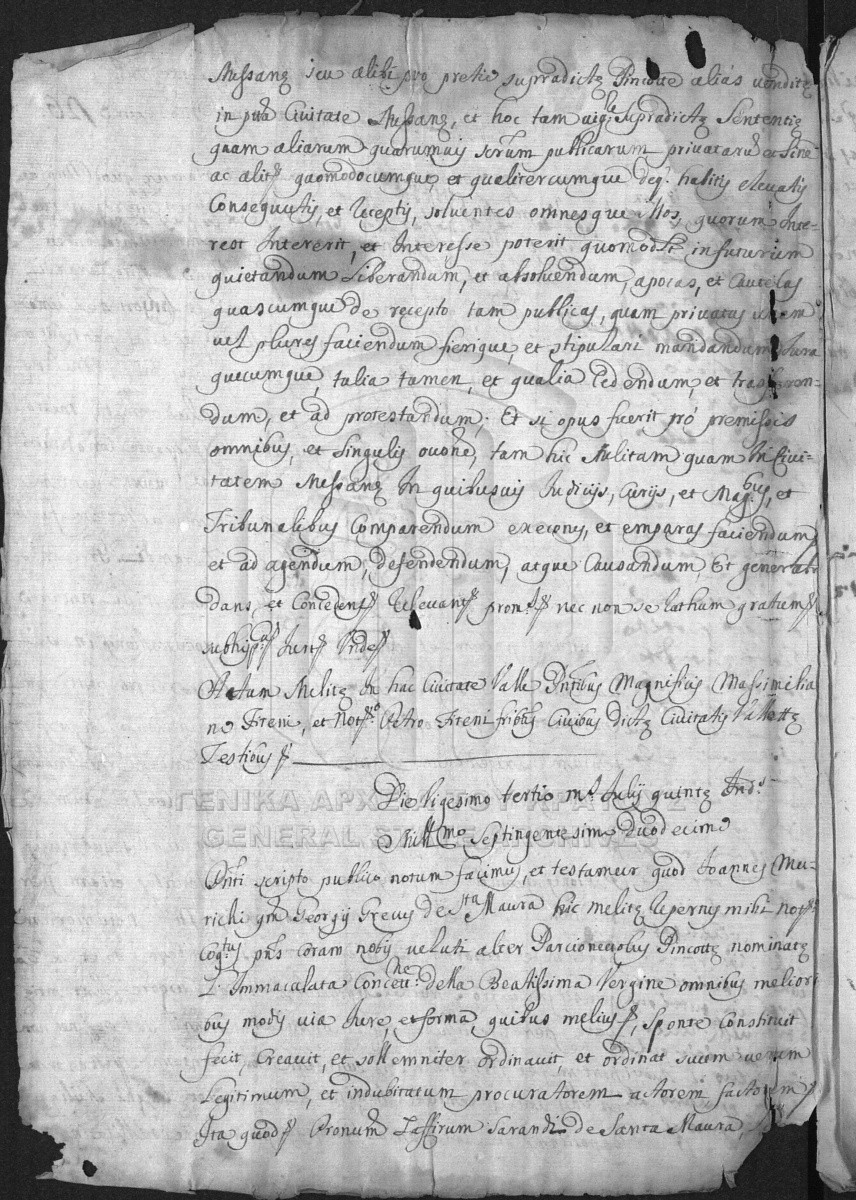 Messanę seu alibi pro pretio supradictę Pincotte aliàs venditę
in pta Civitate Messanę, et hoc tam vig. supradictę Sententię
quam aliarum quarumvis scrārum publicarum privatarū et sine
ac alitr quomodocumque, et qualitercumque habitis elevatis
Consequutis, et receptis, solventes omnesque illos, quorum Inte-
rest Intererit, et Interesse poterit quomodlt in futurum
quietandum Liberandum, et absolvendum, apocas, et Cautelas
quascumque de recepto tam publicas, quam privatas unam
vel plures faciendum fierique, et stipulari mandandum Iura
quecumque, talia tamen, et qualia Cedendum, et trasferen-
dum, et ad protestandum. Et si opus fuerit prò premissis
omnibus, et singulis tam hic Melitam quam In Civi-
tatem Messanę In quibusvis Iudicijs, Curijs, et Mag.bus, et
Tribunalibus Comparendum execōnes, et emparas faciendum
et ad agendum, defendendum, atque Causandum, Et general
dans, et Concedens Relevans prom. nec non se rathum gratum
subhyp.cas Iurt Unde
Actum Melitę In hac Civitate Vallę Pntibus Magnificis Massimilia
no Fireni, et Not.ro Petro Fireni fribus Civibus dictę Civitatis Vallettę
Testibus
Die Vigesimo tertio ms Iulij quintę Ind.s
Mill.mo Septingentesimo Duodecimo
Pnti scripto publico notum facimus, et testamur quod Joannes Mu-
richi qm Georgij Grecus de Sta Maura hic melitę repertus mihi not.ro
Cog.tus pns coram nobis veluti alter Parcionevolus Pincottę nominatę
L'Immaculata Conce.ne della Beatissima Vergine omnibus meliori
bus modis via Iure, et forma, quibus melius, sponte Constituit
fecit, Creavit, et sollemniter ordinavit, et ordinat suum verum
Legitimum, et indubitatum procuratorem actorem factorem
Ita quod Pronum Zaffirum Sarandi de Santa Maura,
ΓΕΝΙΚΑ ΑΡΧΕΙΑ ΤΟΥ ΚΡΑΤΟΥΣ
GENERAL STATE ARCHIVES